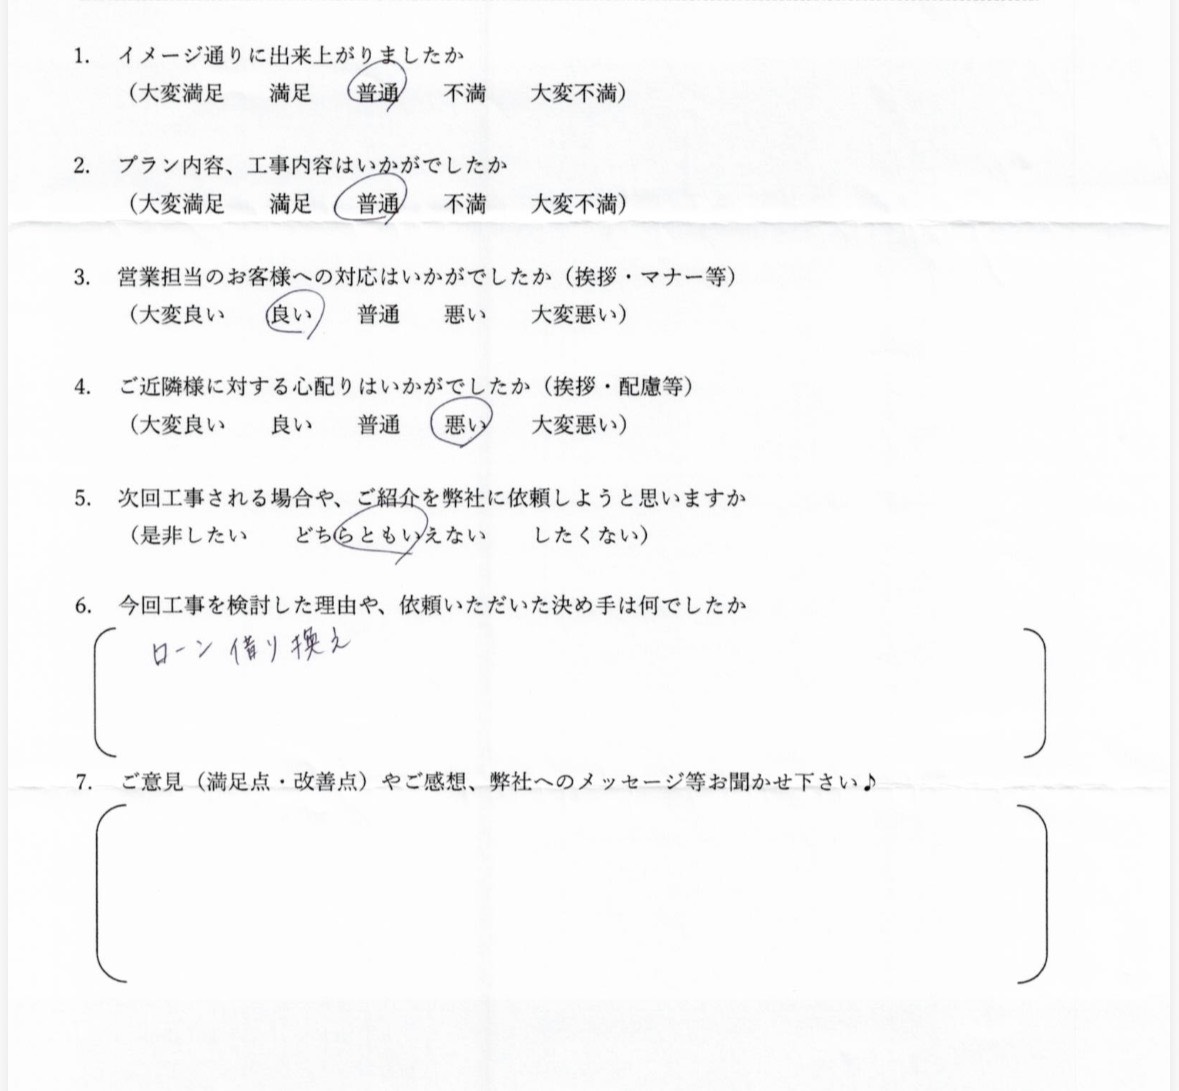 1. イメージ通りに出来上がりましたか
（大変満足　満足　普通　不満　大変不満）
2. プラン内容、工事内容はいかがでしたか
（大変満足　満足　普通　不満　大変不満）
3. 営業担当のお客様への対応はいかがでしたか（挨拶・マナー等）
（大変良い　良い　普通　悪い　大変悪い）
4. ご近隣様に対する心配りはいかがでしたか（挨拶・配慮等）
（大変良い　良い　普通　悪い　大変悪い）
5. 次回工事される場合や、ご紹介を弊社に依頼しようと思いますか
（是非したい　どちらともいえない　したくない）
6. 今回工事を検討した理由や、依頼いただいた決め手は何でしたか
ローン借り換え
7. ご意見（満足点・改善点）やご感想、弊社へのメッセージ等お聞かせ下さい♪